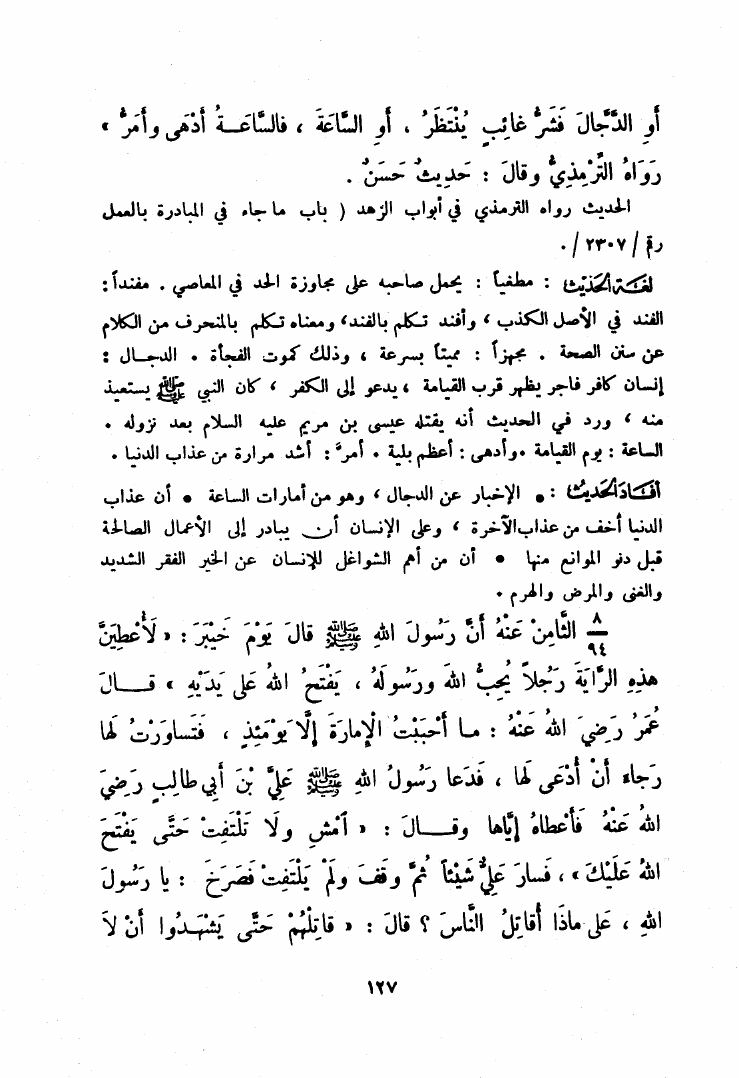 أَوِ الدَّجَّالَ فَشَرُّ غائِبٍ يُنْتَظَرُ ، أَوِ السَّاعَةَ ، فالسَّاعَـةُ أَدْهَى وأَمَرُّ »
رَوَاهُ التِّرْمِذِيُّ وقالَ : حَدِيثٌ حَسَنٌ .
الحديث رواه الترمذي في أبواب الزهد ( باب ما جاء في المبادرة بالعمل
رقم / ٢٣٠٧ / .
لغة الحديث : مطغياً : يحمل صاحبه على مجاوزة الحد في المعاصي . مفنداً :
الفند في الأصل الكذب ، وأفند تكلم بالفند ، ومعناه تكلم بالمنحرف من الكلام
عن سنن الصحة . مجهزاً : مميتاً بسرعة ، وذلك كموت الفجأة . الدجـال :
إنسان كافر فاجر يظهر قرب القيامة ، يدعو إلى الكفر ، كان النبي ﷺ يستعيذ
منه ، ورد في الحديث أنه يقتله عيسى بن مريم عليه السلام بعد نزوله .
الساعة : يوم القيامة . وأدهى : أعظم بلية . أمرَّ : أشد مرارة من عذاب الدنيا .
أفاد الحديث : • الإخبار عن الدجال ، وهو من أمارات الساعة • أن عذاب
الدنيا أخف من عذاب الآخرة ، وعلى الإنسان أن يبادر إلى الأعمال الصالحة
قبل دنو الموانع منها • أن من أهم الشواغل للإنسان عن الخير الفقر الشديد
والغنى والمرض والهرم .
٨/٩٤ الثَّامِنْ عَنْهُ أَنَّ رَسُولَ اللهِ ﷺ قالَ يَوْمَ خَيْبَرَ : « لَأُعْطِيَنَّ
هذِهِ الرَّايَةَ رَجُلاً يُحِبُّ اللهَ ورَسُولَهُ ، يَفْتَحُ اللهُ عَلى يَدَيْهِ » قـــالَ
عُمَرُ رَضِيَ اللهُ عَنْهُ : مـا أَحْبَبْتُ الْإِمارَةَ إِلَّا يَوْمَئِذٍ ، فَتَساوَرْتُ لَها
رَجاءَ أَنْ أُدْعَى لَها ، فَدَعا رَسُولُ اللهِ ﷺ عَلِيَّ بْنَ أَبي طالِبٍ رَضِيَ
اللهُ عَنْهُ فَأَعْطاهُ إِيَّاها وقـــالَ : « اَمْشِ ولَا تَلْتَفِتْ حَتَّى يَفْتَحَ
اللهُ عَلَيْكَ » ، فَسارَ عَلِيٌّ شَيْئاً ثُمَّ وقَفَ ولَمْ يَلْتَفِتْ فَصَرَخَ : يا رَسُولَ
اللهِ ، عَلى ماذَا أُقاتِلُ النَّاسَ ؟ قالَ : « قاتِلْهُمْ حَتَّى يَشْهَـدُوا أَنْ لَا
١٢٧